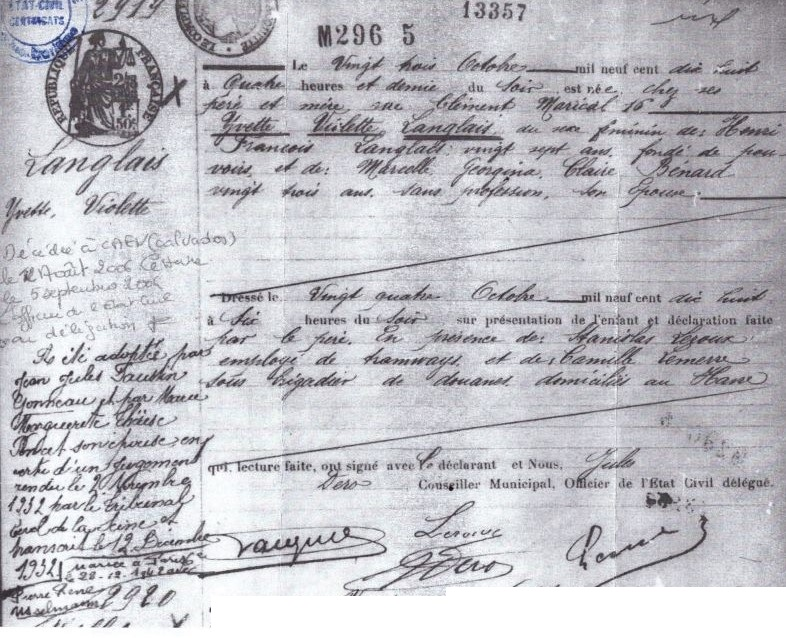 2919
13357
M296 5
RÉPUBLIQUE FRANÇAISE
Le Vingt trois Octobre mil neuf cent dix huit
à Quatre heures et demie du Soir est née, chez ses
père et mère, rue Clément Marical 16
Yvette Violette Langlais du sexe féminin de: Henri
François Langlais vingt sept ans, fondé de pou-
voirs, et de: Marcelle Georgina, Claire Bénard
vingt trois ans, sans profession, son épouse
Langlais
Yvette, Violette
Décédée à CAEN (calvados)
le Août 2006 Le Havre
le 5 septembre 2006
L'officier de l'état civil
par délégation
Dressé le Vingt quatre Octobre mil neuf cent dix huit
à Six heures du Soir sur présentation de l'enfant et déclaration faite
par le père. En présence de: Stanislas Lezoux
employé de tramways, et de: Camille Lemerre
sous brigadier de douanes, domiciliés au Havre
qui, lecture faite, ont signé avec le déclarant et Nous, Jules
Dero Conseiller Municipal, Officier de l'État Civil délégué.
A été adoptée par
Jean Jules Faustin
Yonneau et par
Marguerite
son épouse en
vertu d'un Jugement
rendu le 2 Novembre
1932 par le Tribunal
Civil de la Seine et
transcrit le 12 Décembre
1932
mariée à
le 28-12-1942 avec
Pierre René
2920
J Dero